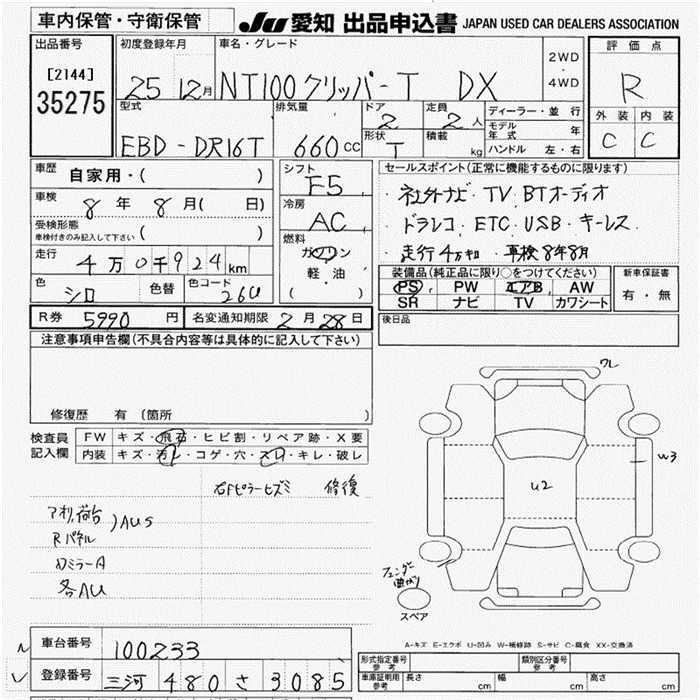 車内保管・守衛保管
JU 愛知 出品申込書 JAPAN USED CAR DEALERS ASSOCIATION
出品番号
[2144]
35275
初度登録年月
25 12月
車名・グレード
NT100クリッパ-T DX
2WD
・
4WD
評価点
R
外装 内装
C C
型式
EBD-DR16T
排気量
660cc
ドア
2
定員
2人
形状
T
積載
kg
ディーラー・並行
モデル年式 年
ハンドル 左・右
車歴
自家用・( )
車検
8年 8月( 日)
受検形態
車検付きのみ記入して下さい ( )
走行
4万0千924km
色
シロ
色替
色コード
26U
シフト
F5
冷房
AC
燃料
ガソリン
軽・油
( )
セールスポイント(正常に機能するものに限ります)
・社外ナビ・TV・BTオーディオ
・ドラレコ・ETC・USB・キーレス
・走行4万キロ・車検8年8月
装備品(純正品に限り○をつけてください)
PS PW エアB AW
SR ナビ TV カワシート
新車保証書
有・無
R券 5990円
名変通知期限 2月28日
後日品
注意事項申告欄(不具合内容等は具体的に記入して下さい)
修復歴 有(箇所 )
検査員記入欄
FW キズ・飛石・ヒビ割・リペア跡・X要
内装 キズ・汚レ・コゲ・穴・スレ・キレ・破レ
右Fピラーヒズミ 修復
アオリ、荷台
Rパネル
)AUS
ミラーA
各AU
ワレ
W3
U2
フェンダー曲がり
スペア
A-キズ E-エクボ U-凹み W-補修跡 S-サビ C-腐食 XX-交換済
車台番号 100233
登録番号 三河 480 さ 3085
型式指定番号 参考
類別区分番号 参考
車庫証明用 参考
長さ cm 幅 cm 高さ cm